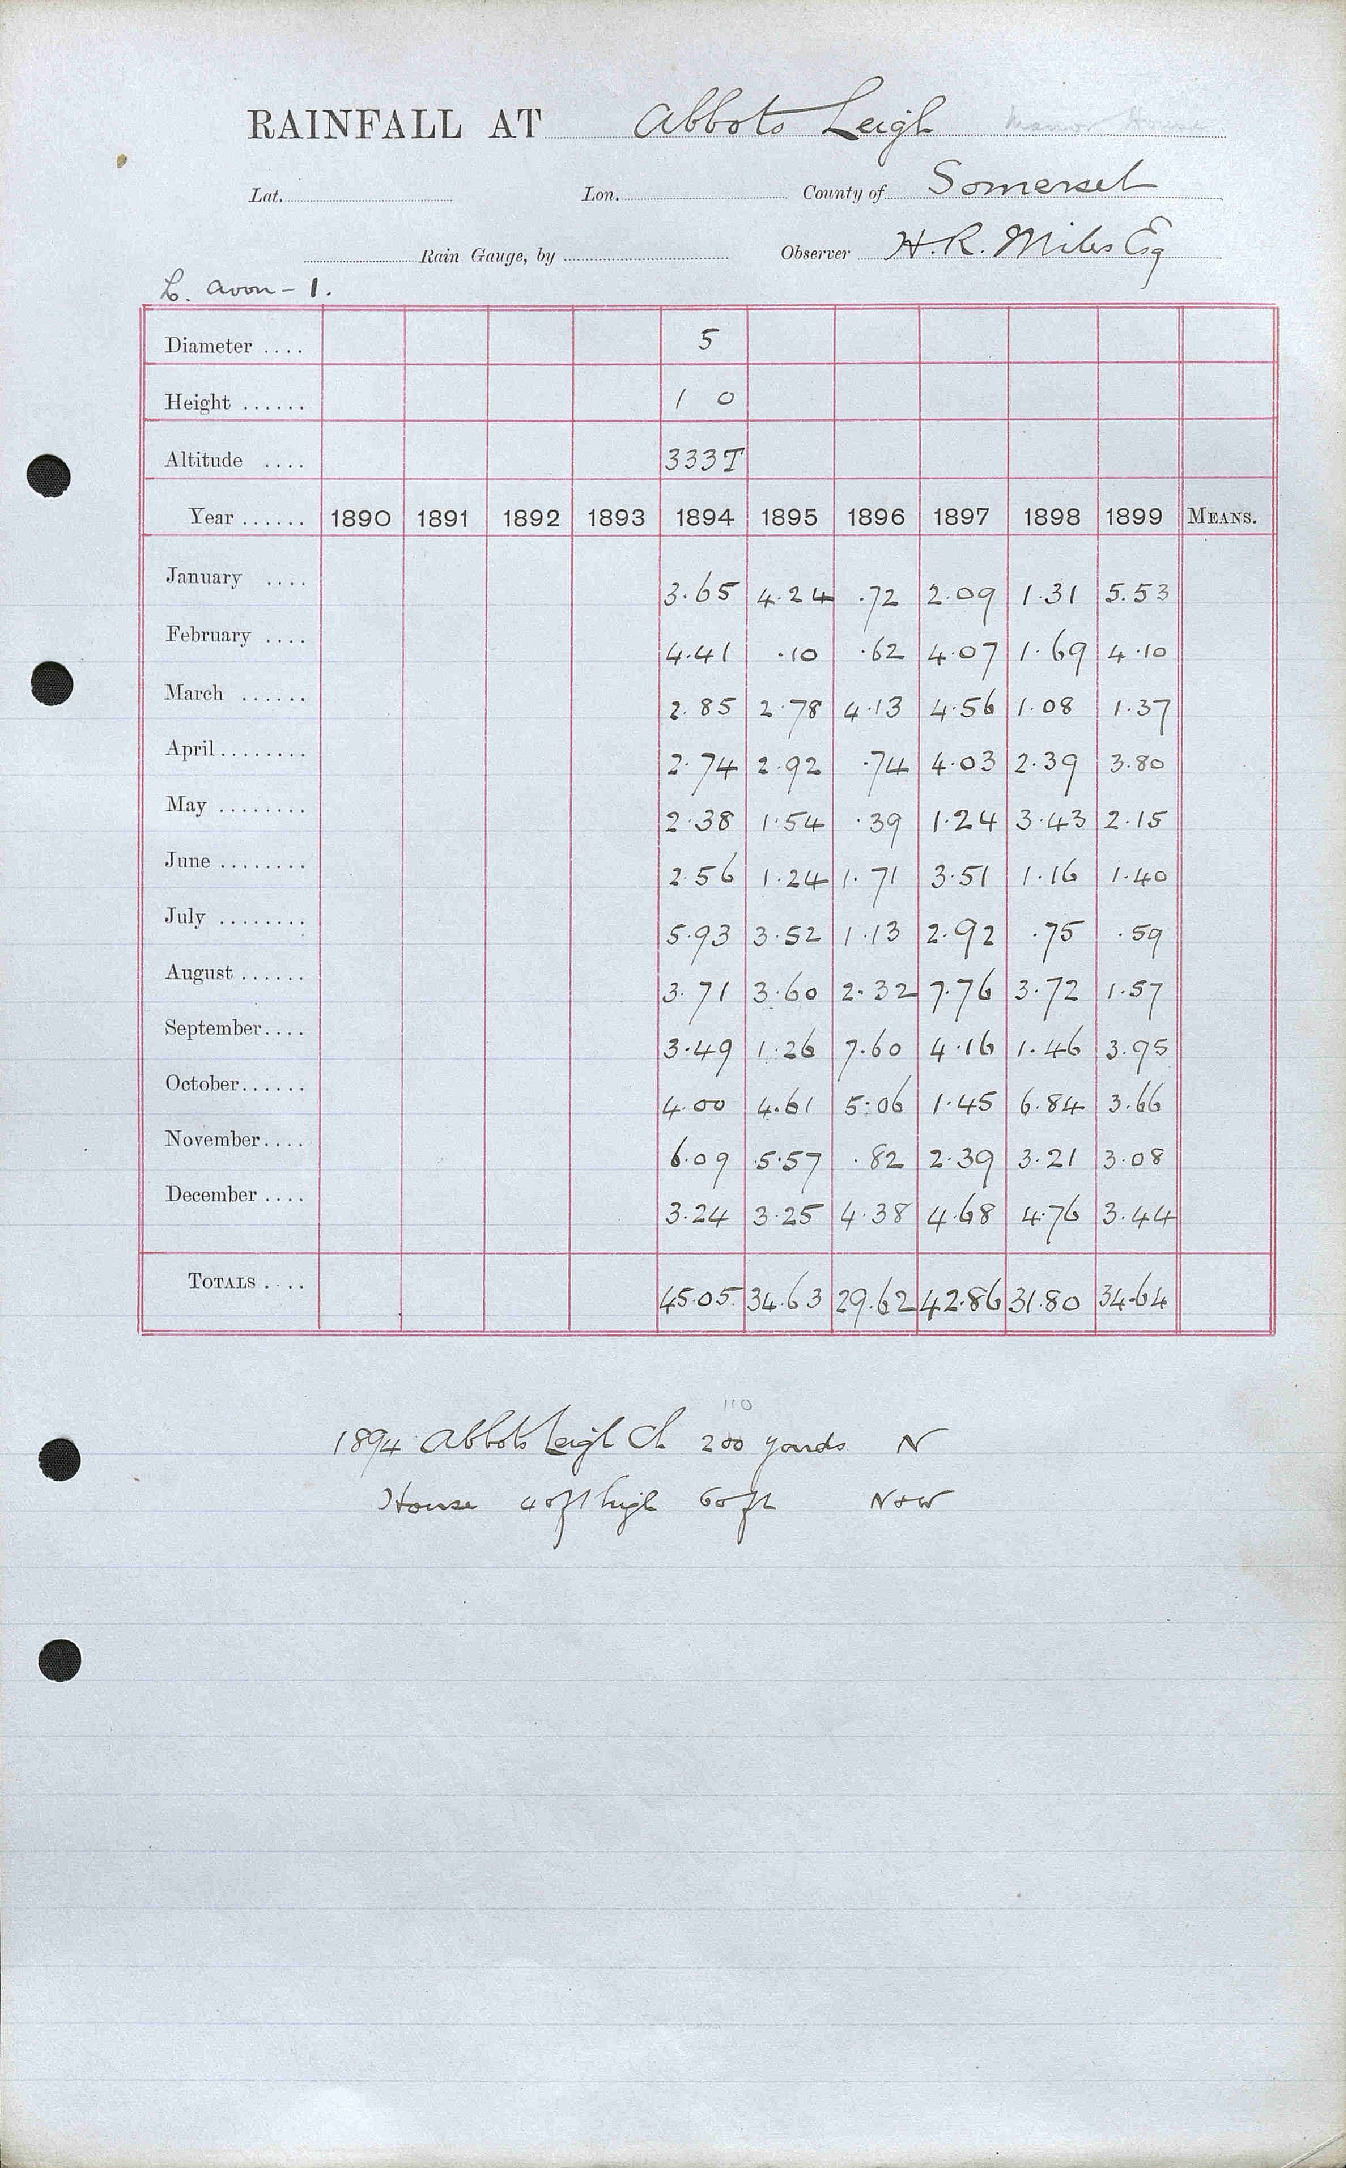 RAINFALL AT Abbots Leigh Manor House
Lat. Lon. County of Somerset
Rain Gauge, by Observer H.R. Miles Esq
L. Avon - 1.
Diameter .... 5
Height ...... 1 0
Altitude .... 333T
Year ...... 1890 1891 1892 1893 1894 1895 1896 1897 1898 1899 MEANS.
January .... 3.65 4.24 .72 2.09 1.31 5.53
February .... 4.41 .10 .62 4.07 1.69 4.10
March ...... 2.85 2.78 4.13 4.56 1.08 1.37
April ........ 2.74 2.92 .74 4.03 2.39 3.80
May ........ 2.38 1.54 .39 1.24 3.43 2.15
June ........ 2.56 1.24 1.71 3.51 1.16 1.40
July ........ 5.93 3.52 1.13 2.92 .75 .59
August ...... 3.71 3.60 2.32 7.76 3.72 1.57
September.... 3.49 1.26 7.60 4.16 1.46 3.95
October...... 4.00 4.61 5.06 1.45 6.84 3.66
November.... 6.09 5.57 .82 2.39 3.21 3.08
December .... 3.24 3.25 4.38 4.68 4.76 3.44
TOTALS .... 45.05 34.63 29.62 42.86 31.80 34.64
110
1894 Abbots Leigh Ch 200 yards N
House 40ft high 60ft N+W